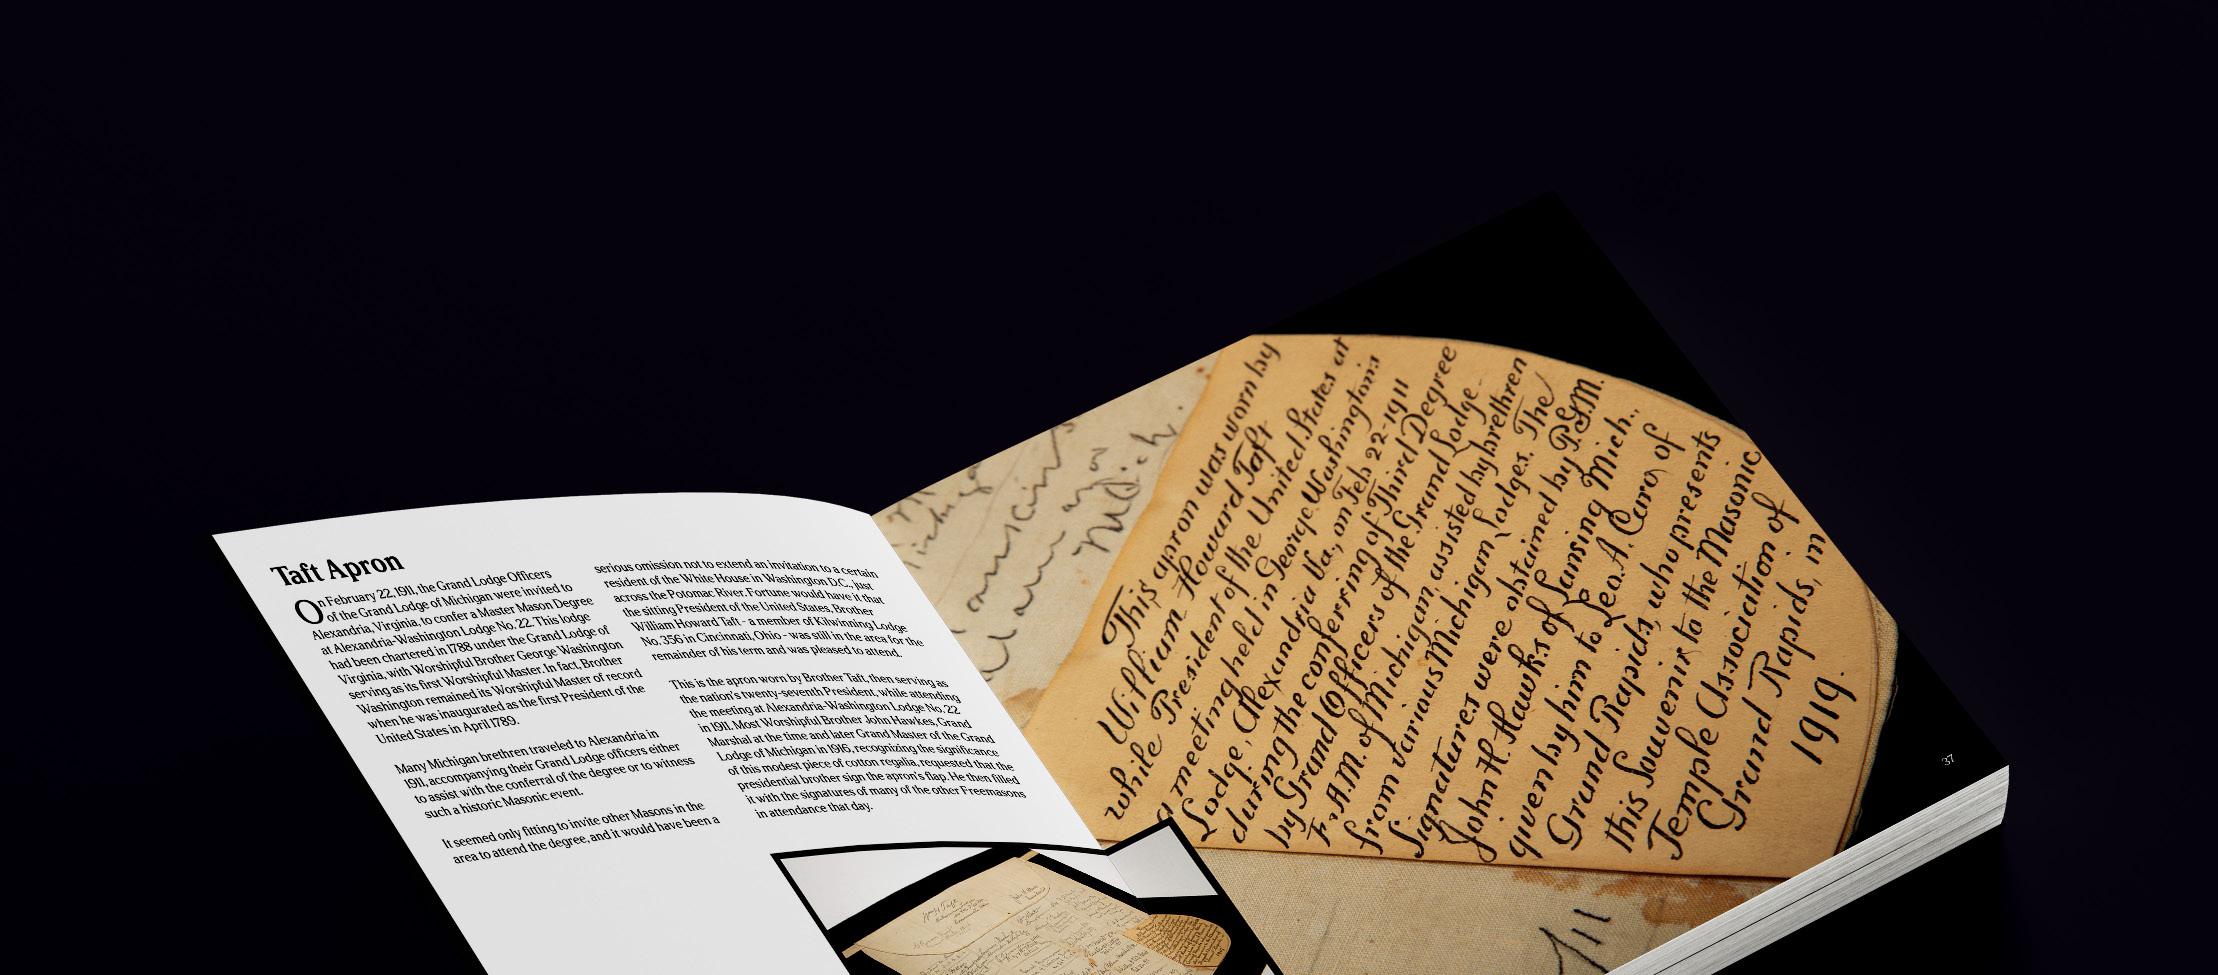 Taft Apron
On February 22, 1911, the Grand Lodge Officers
of the Grand Lodge of Michigan were invited to
Alexandria, Virginia, to confer a Master Mason Degree
at Alexandria-Washington Lodge No. 22. This lodge
had been chartered in 1788 under the Grand Lodge of
Virginia, with Worshipful Brother George Washington
serving as its first Worshipful Master. In fact, Brother
Washington remained its Worshipful Master of record
when he was inaugurated as the first President of the
United States in April 1789.
Many Michigan brethren traveled to Alexandria in
1911, accompanying their Grand Lodge officers either
to assist with the conferral of the degree or to witness
such a historic Masonic event.
It seemed only fitting to invite other Masons in the
area to attend the degree, and it would have been a
serious omission not to extend an invitation to a certain
resident of the White House in Washington D.C., just
across the Potomac River. Fortune would have it that
the sitting President of the United States, Brother
William Howard Taft - a member of Kilwinning Lodge
No. 356 in Cincinnati, Ohio - was still in the area for the
remainder of his term and was pleased to attend.
This is the apron worn by Brother Taft, then serving as
the nation's twenty-seventh President, while attending
the meeting at Alexandria-Washington Lodge No. 22
in 1911. Most Worshipful Brother John Hawkes, Grand
Marshal at the time and later Grand Master of the Grand
Lodge of Michigan in 1916, recognizing the significance
of this modest piece of cotton regalia, requested that the
presidential brother sign the apron's flap. He then filled
it with the signatures of many of the other Freemasons
in attendance that day.
This apron was worn by
William Howard Taft
while President of the United States at
a meeting held in George Washingtons
Lodge, Alexandria Va., on Feb 22-1911
during the conferring of Third Degree
by Grand Officers of the Grand Lodge-
F. & A.M. of Michigan, assisted by brethren
from various Michigan Lodges. The
Signatures were obtained by P.G.M.
John H. Hawks of Lansing Mich.,
given by him to Leo. A. Caro, of
Grand Rapids, who presents
this Souvenir to the Masonic
Temple Association of
Grand Rapids, in
1919.
Mich.
37